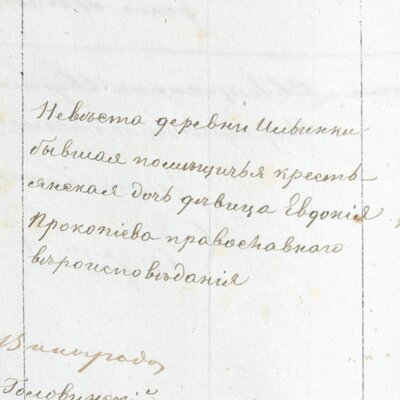 Невѣста деревни Ильинки
бывшая помѣщичья кресть-
янская дочь дѣвица Евдокія
Прокопіева православнаго
вѣроисповѣданія
Виноградо
Головинскій